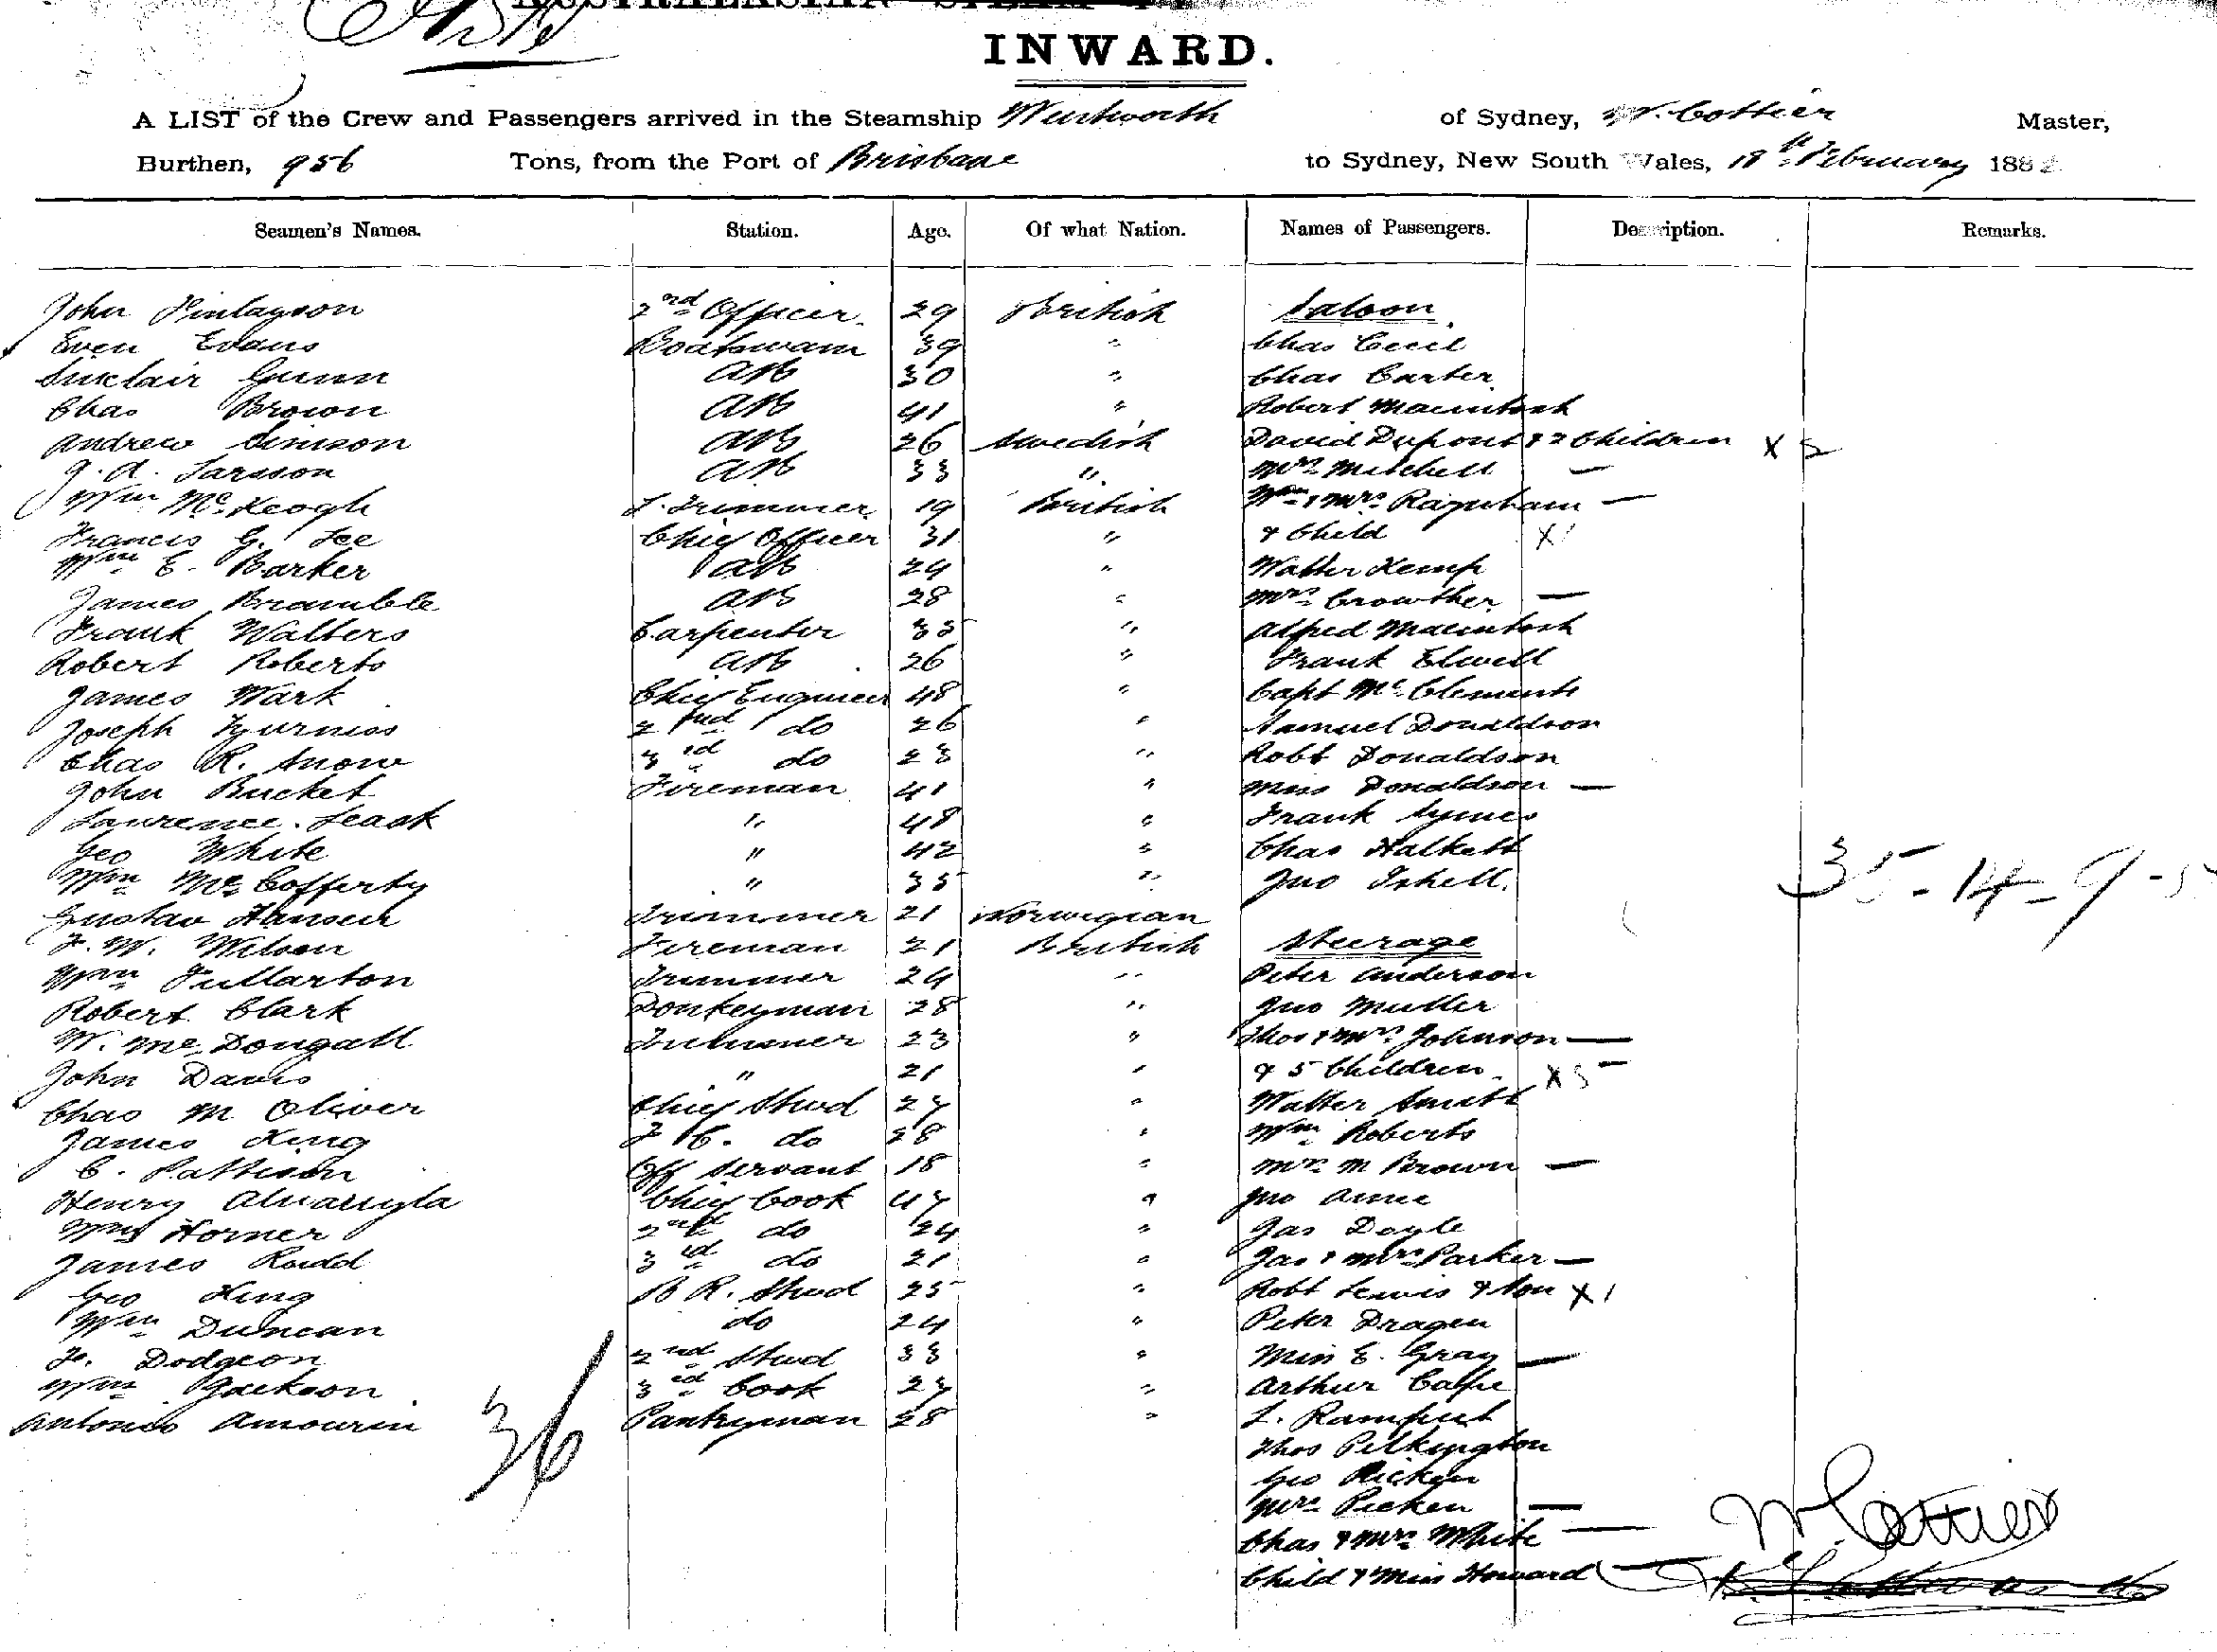 AUSTRALASIAN STEAM
INWARD.
A LIST of the Crew and Passengers arrived in the Steamship Wentworth of Sydney, W. Cottier Master,
Burthen, 956 Tons, from the Port of Brisbane to Sydney, New South Wales, 18th February 1882
Seamen's Names. Station. Age. Of what Nation. Names of Passengers. Description. Remarks.
John Finlayson 2nd Officer. 29 British Saloon
Even Evans Boatswain 39 " Chas Cecil
Sinclair Gunn AB 30 " Chas Carter
Chas Brown AB 41 " Robert Macintosh
Andrew Simson AB 26 Swedish David Dupont & 2 Children X 2
J. A. Larsson AB 33 " Mrs Mitchell —
Wm McKeogh L. Trimmer 19 British Wm & Mrs —
Francis G. Lee Chief Officer 31 " & Child X1
Wm E. Barker AB 24 " Walter Kemp
James Bramble AB 28 " Mrs Crowther —
Frank Walters Carpenter 35 " Alfred Macintosh
Robert Roberts AB 26 " Frank Elwell
James Wark Chief Engineer 48 " Capt McClements
Joseph Furniss 2nd do 26 " Samuel Donaldson
Chas R. Snow 3rd do 23 " Robt Donaldson
John Bucket Fireman 41 " Miss Donaldson —
Laurence Leask " 48 " Frank Symes
Geo White " 42 " Chas Halkett
Wm McCofferty " 35 " Jno Ishell. 35-14-9-
Gustav Hansen Trimmer 21 Norwegian
F. W. Wilson Fireman 21 British Steerage
Wm Fullarton Trimmer 24 " Peter Anderson
Robert Clark Donkeyman 28 " Jno Muller
W. McDougall Trimmer 23 " Thos & Mrs Johnson —
John Davis " 21 " & 5 Children X 5
Chas M Oliver Chief Stwd 27 " Walter Smith
James King F C. do 28 " Wm Roberts
C. Pattison Off Servant 18 " Mrs M Brown —
Henry Chief Cook 47 " Jno Anne
Wm Horner 2nd do 24 " Jas Doyle
James Rudd 3rd do 21 " Jas & Mrs Parker —
Geo King B R. Stwd 25 " Robt Lewis & Son X 1
Wm Duncan do 24 " Peter Dragen
F. Dodgeon 2nd Stwd 33 " Miss E. Gray —
Wm Jackson 3rd Cook 27 " Arthur
Antonio Amourin Pantryman 28 " L.
36
Thos Pilkington
Geo Picken
Mrs Picken —
Chas & Mrs White —
Child & Miss Howard —
W Cottier